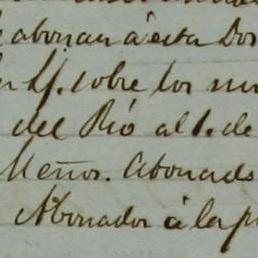 abonan á esta Dos
sobre los
del Rio al 1. de
Menos. Abonado
Abonador á la